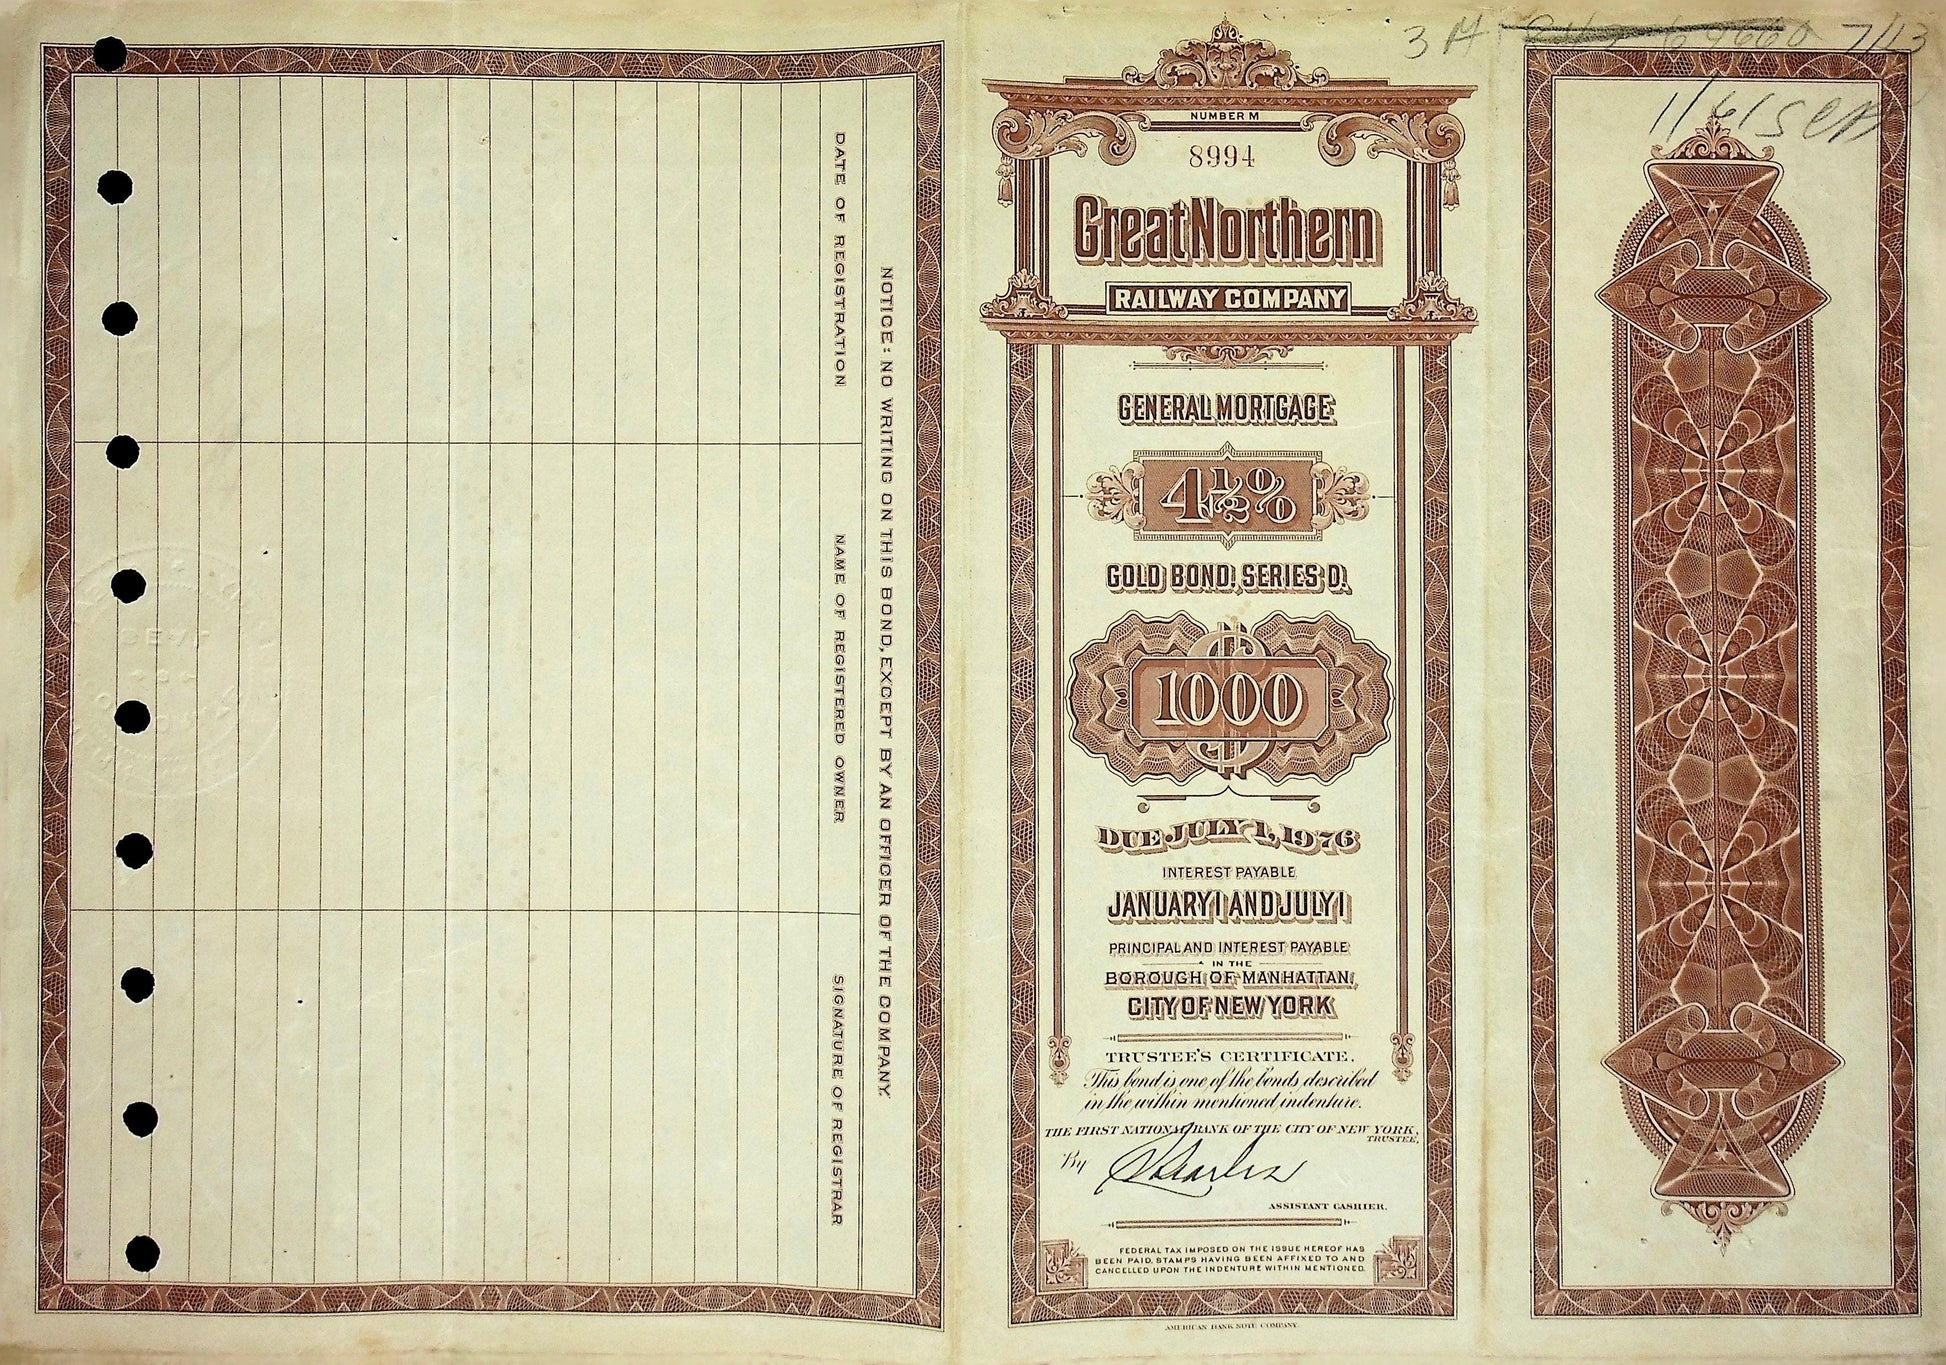 DATE OF REGISTRATION
NAME OF REGISTERED OWNER
SIGNATURE OF REGISTRAR
NOTICE: NO WRITING ON THIS BOND, EXCEPT BY AN OFFICER OF THE COMPANY.
SEAL
NUMBER M
8994
Great Northern
RAILWAY COMPANY
GENERAL MORTGAGE
4½%
GOLD BOND, SERIES D.
$1000
DUE JULY 1, 1976
INTEREST PAYABLE
JANUARY 1 AND JULY 1
PRINCIPAL AND INTEREST PAYABLE
IN THE
BOROUGH OF MANHATTAN,
CITY OF NEW YORK
TRUSTEE'S CERTIFICATE.
This bond is one of the bonds described
in the within mentioned indenture.
THE FIRST NATIONAL BANK OF THE CITY OF NEW YORK,
TRUSTEE,
By
ASSISTANT CASHIER.
FEDERAL TAX IMPOSED ON THE ISSUE HEREOF HAS
BEEN PAID, STAMPS HAVING BEEN AFFIXED TO AND
CANCELLED UPON THE INDENTURE WITHIN MENTIONED.
AMERICAN BANK NOTE COMPANY.
3 A 7/13